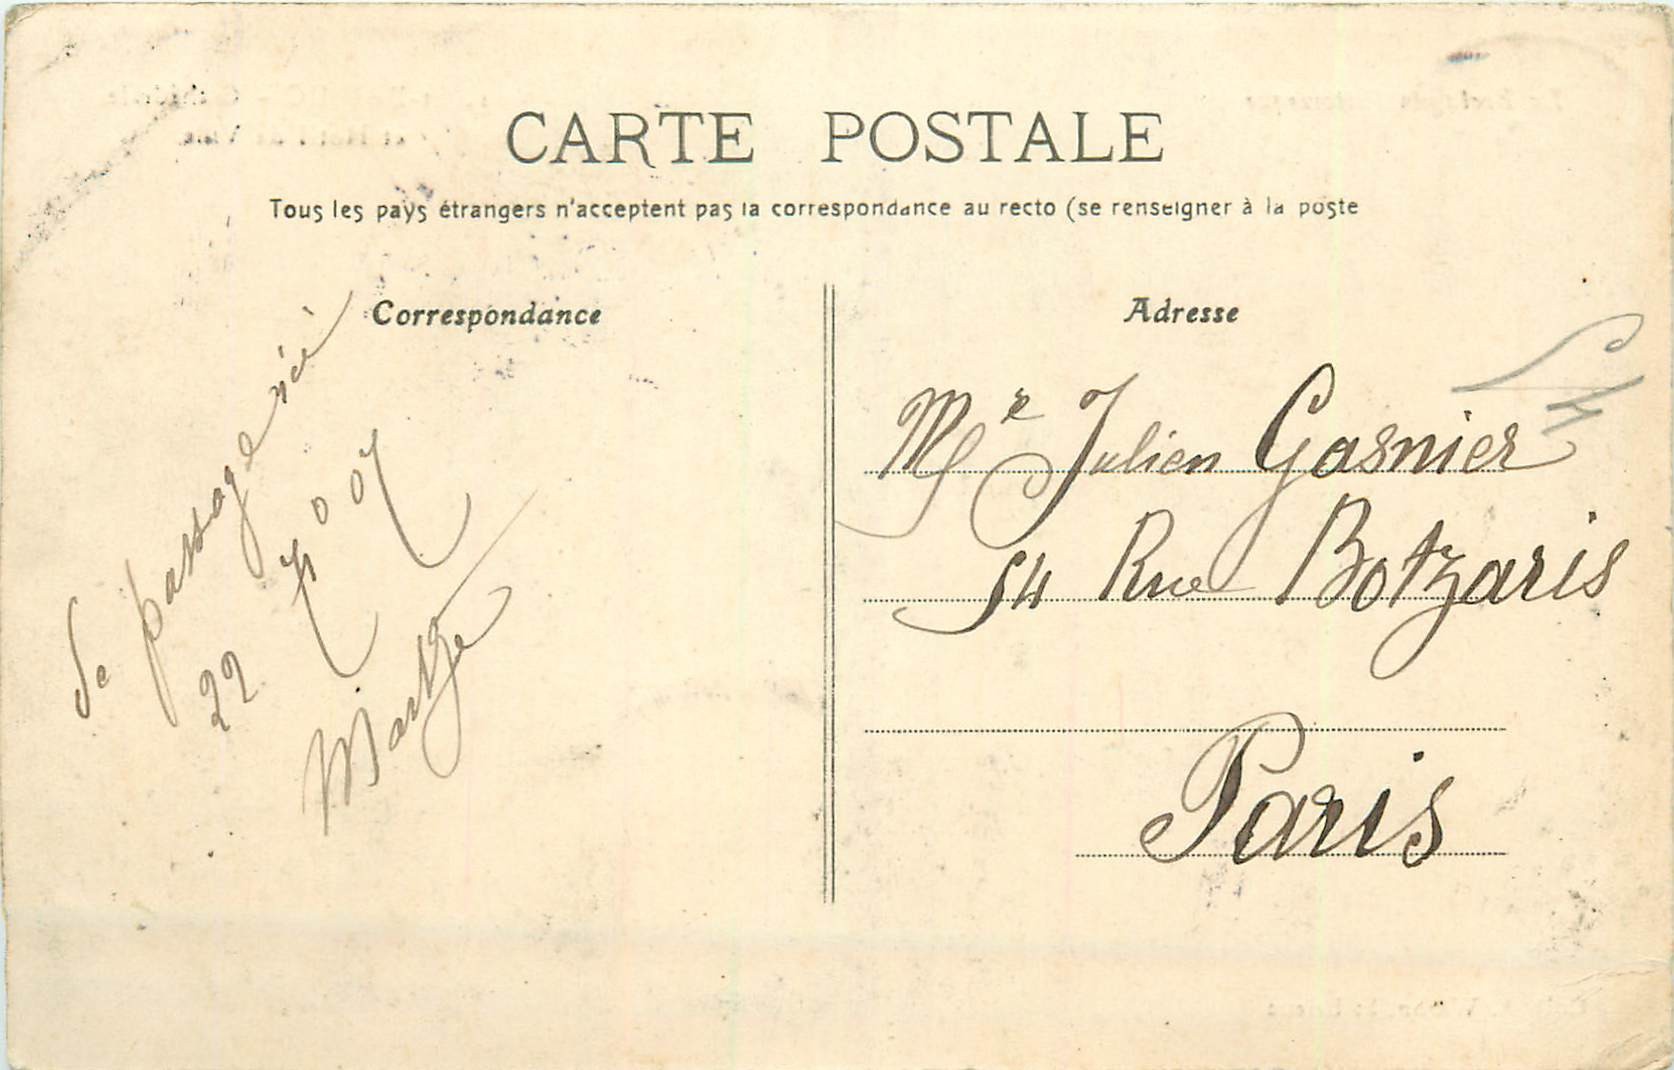 CARTE POSTALE
Tous les pays étrangers n'acceptent pas la correspondance au recto (se renseigner à la poste
Correspondance
De passage ici
22
Adresse
Mr Julien Gasnier
54 Rue Botzaris
Paris